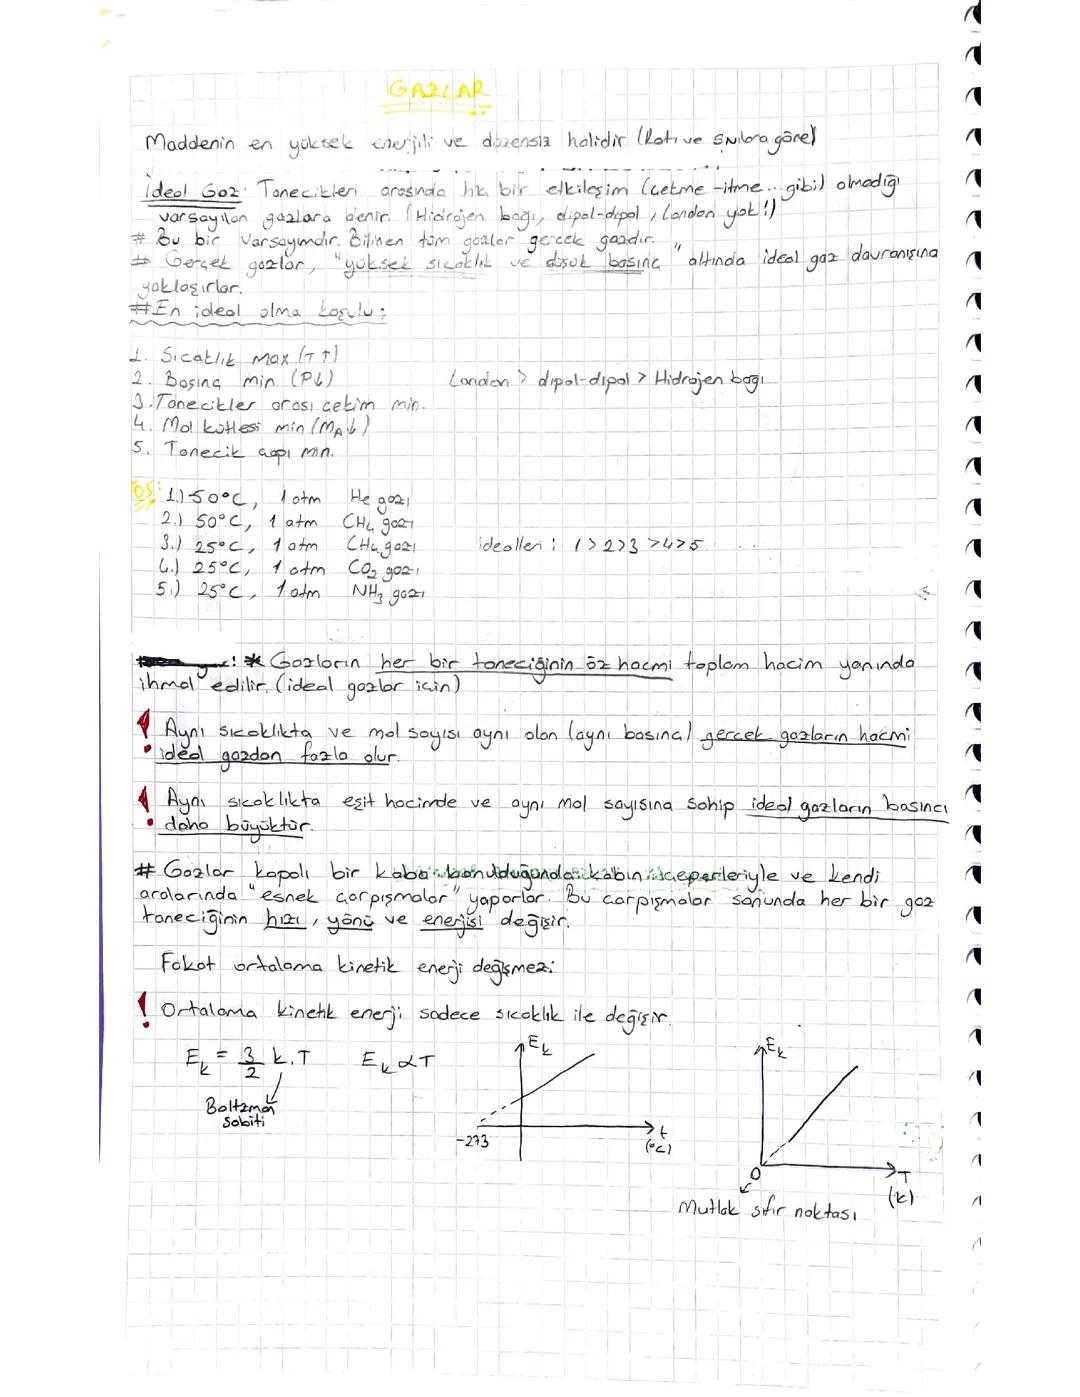 GAZLAR
Maddenin en yüksek enerjili ve düzensiz halidir (Katı ve sıvılara göre)
İdeal Gaz: Tanecikleri arasında hiç bir etkileşim (çekme-itme.. gibi) olmadığı
varsayılan gazlara denir. (Hidrojen bağı, dipol-dipol, London yok!)
# Bu bir varsayımdır. Bilinen tüm gazlar gerçek gazdır.
# Gerçek gazlar, "yüksek sıcaklık ve düşük basınç" altında ideal gaz davranışına
yaklaşırlar.
#En ideal olma koşulu:
1. Sıcaklık max (T↑)
2. Basınç min. (P↓) London > dipol-dipol > Hidrojen bağı
3. Tanecikler arası çekim min.
4. Mol kütlesi min (MA↓)
5. Tanecik çapı min.
ÖS: 1.) 50°C, 1 atm He gazı
2.) 50°C, 1 atm CH4 gazı
3.) 25°C, 1 atm CH4 gazı idealleri: 1>2>3>4>5
4.) 25°C, 1 atm CO2 gazı
5.) 25°C, 1 atm NH3 gazı
: * Gazların her bir taneciğinin öz hacmi toplam hacim yanında
ihmal edilir. (ideal gazlar için)
! Aynı sıcaklıkta ve mol sayısı aynı olan (aynı basınç) gerçek gazların hacmi
ideal gazdan fazla olur.
! Aynı sıcaklıkta eşit hacimde ve aynı mol sayısına sahip ideal gazların basıncı
daha büyüktür.
# Gazlar kapalı bir kaba konulduğunda kabın çeperleriyle ve kendi
aralarında "esnek çarpışmalar" yaparlar. Bu çarpışmalar sonunda her bir gaz
taneciğinin hızı, yönü ve enerjisi değişir.
Fakat ortalama kinetik enerji değişmez.
! Ortalama kinetik enerji sadece sıcaklık ile değişir.
Ek = 3/2 k.T Ek α T
Boltzman
sabiti
Ek
-273
t
(°C)
Ek
0
T
(K)
Mutlak sıfır noktası